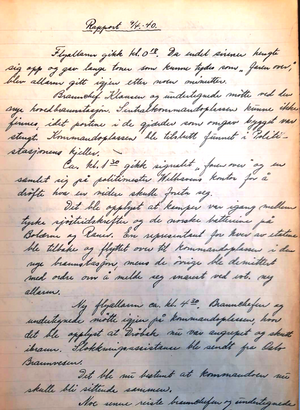 Rapport 9/4-40.
Flyalarm gikk kl. 0¹⁰. Da endel sirener hengte
sig opp og gav lange toner som kunne tydes som „faren over",
blev alarm gitt igjen efter noen minutter.
Brannchef Klausen og undertegnede møtte ved den
nye hovedbrannstasjon. Sentralkommandoplassen kunne ikke
finnes, idet porten i de gjerder som omgav bygget var
stengt. Kommandoplassen ble tilslutt funnet i Politi-
stasjonens kjeller.
Ca. kl. 1³⁰ gikk signalet „faren over" og en
samlet sig på politimester Welhavens kontor for å
drøfte hva en videre skulle foreta seg.
Det ble opplyst at kamper var igang mellem
tyske sjøstridskrefter og de norske batterier på
Bolærne og Rauøi. En representant for hver av etatene
ble tilbake og flyttet over til kommandoplassen i den
nye brannstasjon, mens de øvrige ble demittert
med ordre om å melde seg snarest ved evt. ny
alarm.
Ny flyalarm ca. kl. 4³⁰. Brannchefen og
undertegnede møtte igjen på kommandoplassen, hvor
det ble opplyst at Drøbak nu var angrepet og skutt
i brann. Slokkningsassistance ble sendt fra Oslo
Brannvesen.
Det ble nu bestemt at kommandoen nu
skulle bli sittende sammen.
Noe senere reiste brannchefen og undertegnede